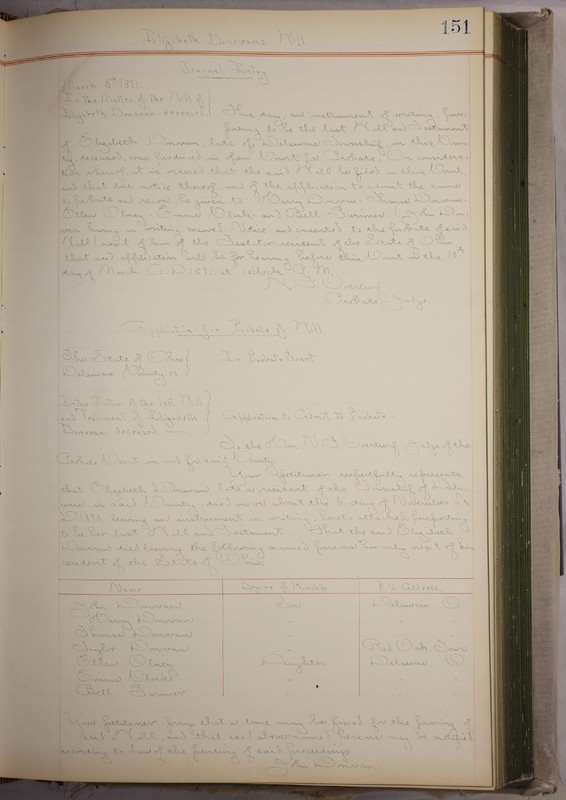 151
Elizabeth Donovans Will
Journal Entry
March 5th 1891.
In the Matter of the Will of
Elizabeth Donovan deceased
This day, an instrument of writing, pur-
porting to be the last Will and Testament
of Elizabeth Donovan, late of Delaware Township, in this Coun-
ty deceased, was produced in open Court for Probate. On considera-
tion whereof, it is ordered that the said Will be filed in this Court
and that due notice thereof and of the application to admit the same
to probate and record be given to Harry Donovan, Thomas Donovan,
Ellen Olney, Emma and Bell Farmer (John Do-
novan having in writing waived Notice and consented to the probate of said
Will) next of kin of the Testator resident of the State of Ohio
that said application will be for hearing before this Court on the 10th
day of March A.D. 1891. at 1 o'clock P.M.
Probate Judge.
Application for Probate of Will
The State of Ohio
Delaware County ss
In Probate Court
In the Matter of the last Will
and Testament of Elizabeth
Donovan deceased,
Application to Admit to Probate.
To the Hon. Judge of the
Probate Court in and for said County.
Your Petitioner respectfully represents
that Elizabeth Donovan late a resident of the Township of Dela-
ware in said County, died on or about the day of November A.
D. 1890, leaving an instrument in writing hereto attached, purporting
to be her last Will and Testament. That the said Elizabeth
Donovan died leaving the following named persons her only next of kin
resident of the State of Ohio:
Name Degree of Kinship P.O. Address.
John Donovan Son Delaware O
Harry Donovan " "
Thomas Donovan " "
Taylor Donovan " Red Oak Iowa
Ellen Olney Daughter Delaware O
Emma " "
Bell Farmer " "
Your petitioner prays that a time may be fixed for the proving of
said Will, and that said above named persons may be notified
according to law of the pendency of said proceedings.
John Donovan.